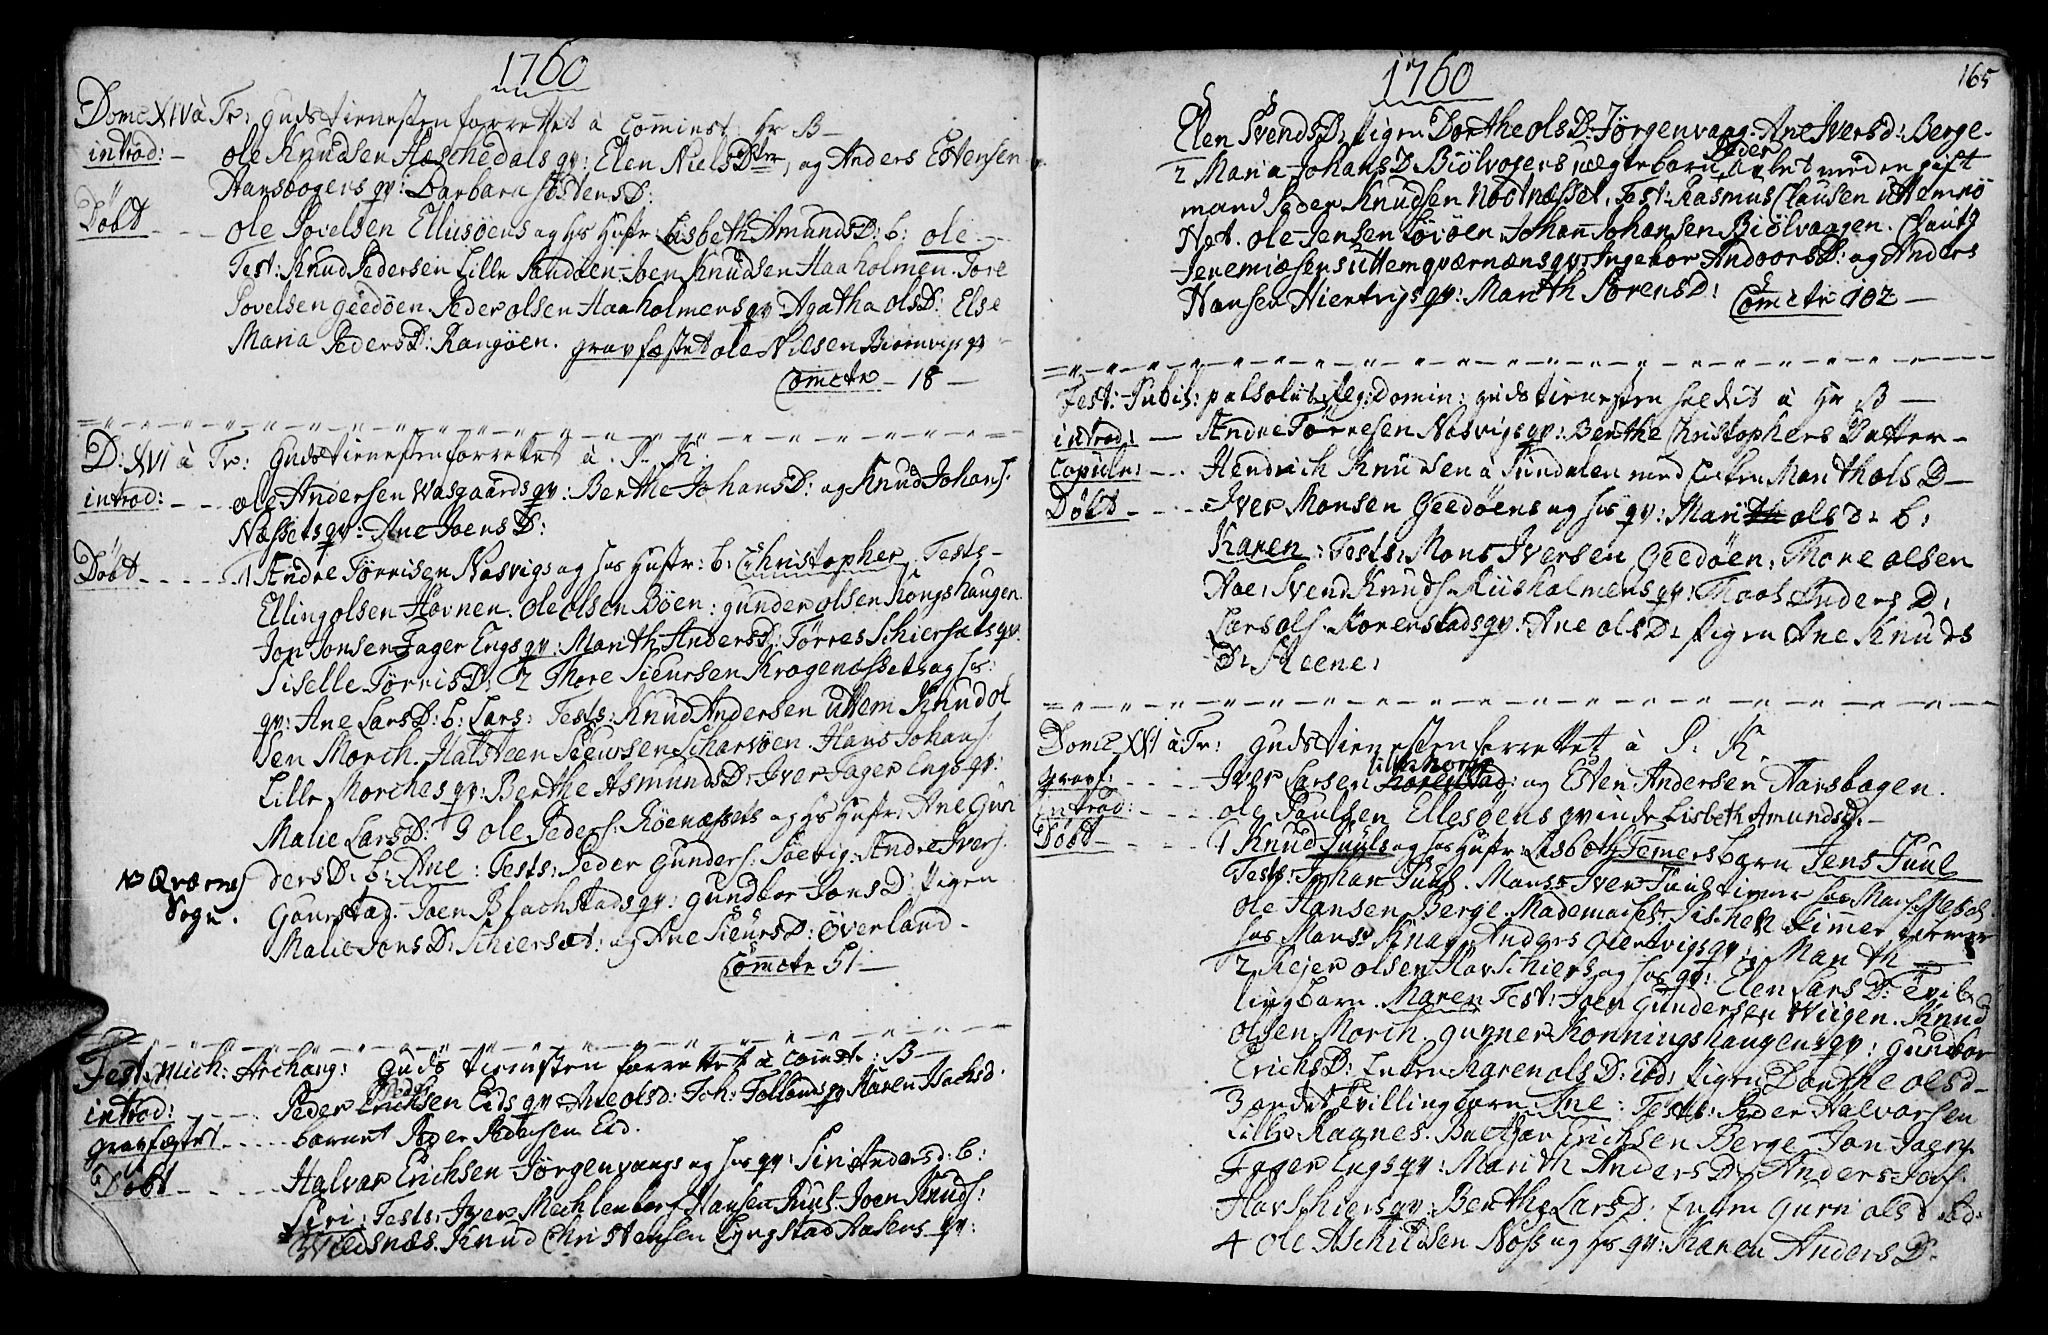 1760
Domc XIV à Tr: gudstienesten forrettet à Cominst: Hr B —
introd: — ole Knudsen Hæschedals qv: Elen Niels Dtter, og Anders Estensen
Aarsbogens qv: Barbara Ostens D:
Döbt - - - ole Povelsen Ellusöens og hs Hustr: Lisbeth Amunds D: b: ole —
Test: Knud Pedersen Lille Sandöen Joen Knudsen Haaholmen. Tore
Povelsen Geedöen. Peder olsen Haaholmens qv Agatha ols D: Else
Maria Peders D: Rangöen. gravfæstet ole Nilsen Biörnvigs qv -
Comctr — 18 —
D: XVI à Tr: Gudstienesten forrettet à P. K:
introd: - - - ole Andersen Wasgaards qv: Berthe Johans D: og Knud Johans.
Næssets qv: Ane Joens D:
Döbt - - - - 1 Andre Törrisen Nasvigs og hs Hustr: b: Christopher. Tests -
Elling olsen Hovnen. Ole olsen Böen: gunder olsen Kongshaugen
Jon Jonsen Fager Engs qv: Marith Anders D: Törres Schiersæts qv:
Siselle Törris D: 2 Thore Siursen Kragenæssets og hs:
qv: Ane Lars D: b: Lars: Tests: Knud Andersen Uttem Knud ol
sen Morch. Halsteen Siursen Scharsöen. Hans Johans.
Lille Morches qv: Berthe Asmunds D: Iver Fager Engs qv:
Malie Lars D: 3 ole Peders: Röenæssets og hs Hustr: Ane Gun
ders D: b: Ane: Tests: Peder Gunders: Soevig: Andre Ivers:
NB Qværnes
Sogn.
Gaurstad. Joen Blachstads qv: Gundbor Jons D: pigen
Malie Jons D: Schiersæt: og Ane Siurs D: Överland -
Comctr 51 —
Fest: Mich: Archang: Guds tienesten forrettet à Comct: B —
introd: - - - Peder Erichsen Eids qv Ane ols d: Joh: Follands qv Karen Isachs d:
gravfæstet - - - barnet Peder Pedersen Eid.
Döbt - - - Halvar Erichsen Jörgenvaags og hs qv: Siri Anders d: b:
Siri: Tests: Iver Mechlenborg Hansen Juul. Joen Knuds:
Wildsnæs. Knud Christensen Lyngstad Aasens qv:
1760
165
Elen Svends D: pigen Dorthe ols D: Jörgenvaag. Ane Ivers d: Berge -
2 Maria Johans D Biölvogens uægte barn Peder avlet med en gift
mand Peder Knudsen Nootnæsset, Test: Rasmus Clausen Uttemsö
Not. ole Jensen Lovöen, Johan Johansen Biölvaagen. Clautz
Jeremiæsens Uttemqværnæns qv: Ingebor Andoors D: og Anders
Hansen Hiertvigs qv: Marith Sörens D: Comctr 102 —
Fest: Jubil: p: absolut: Reg: Domin: gudstienesten holdet à Hr B —
introd: — Andre Törresen Nasvigs qv: Berthe Christophers Datter -
Copule: - - Hendrich Knudsen à Sundalen med Enken Marith ols D —
Döbt - - - - Iver Monsen Geedöens og hs qv: Marith ols d: b:
Karen: Tests: Mons Iversen Geedöen, Thore olsen
Roe: Svend Knuds. Riisholmens qv: Maal Anders D:
Lars ols. Korenstads qv: Ane ols D: pigen Ane Knuds
D: Steene:
Domc XVI à Tr: Gudstienesten forrettet à P: K.
gravf: - - - - Iver Larsen Lille Horge: og Esten Andersen Aarsbogen.
introd: - - - - ole Paulsen Ellesöens qvinde Lisbeth Amunds d: —
Döbt - - - - - 1 Knud Juuls og hs Hustr: Lisbeth Femers barn Jens Juul
Tests: Johan Juul. Mans: Iver Juul
ole Hansen Berge. Mademoiselle
hos Mans Knar Anders Giertvigs qv: Marith
2 Rejer olsen Havschiers og hs qv: Elen Lars D: Tvil
lingbarn. Maren Test: Joen Gundersen Wiigen. Knud
olsen Morch. gunner Konningshaugens qv: gundbor
Erichs D: Enken Maren ols D: ibd: pigen Dorthe ols d -
3 andet Tvillingbarn Ane: Tests: Peder Halvorsen
Lille Ragnes. Erichsen Berge Jon Joens
Fager Engs qv: Marith Anders D: Anders
Havschiers qv: Berthe Lars D: Enken Guri ols d ibd:
4 ole Aschildsen Noss og hs qv: Karen Anders D: